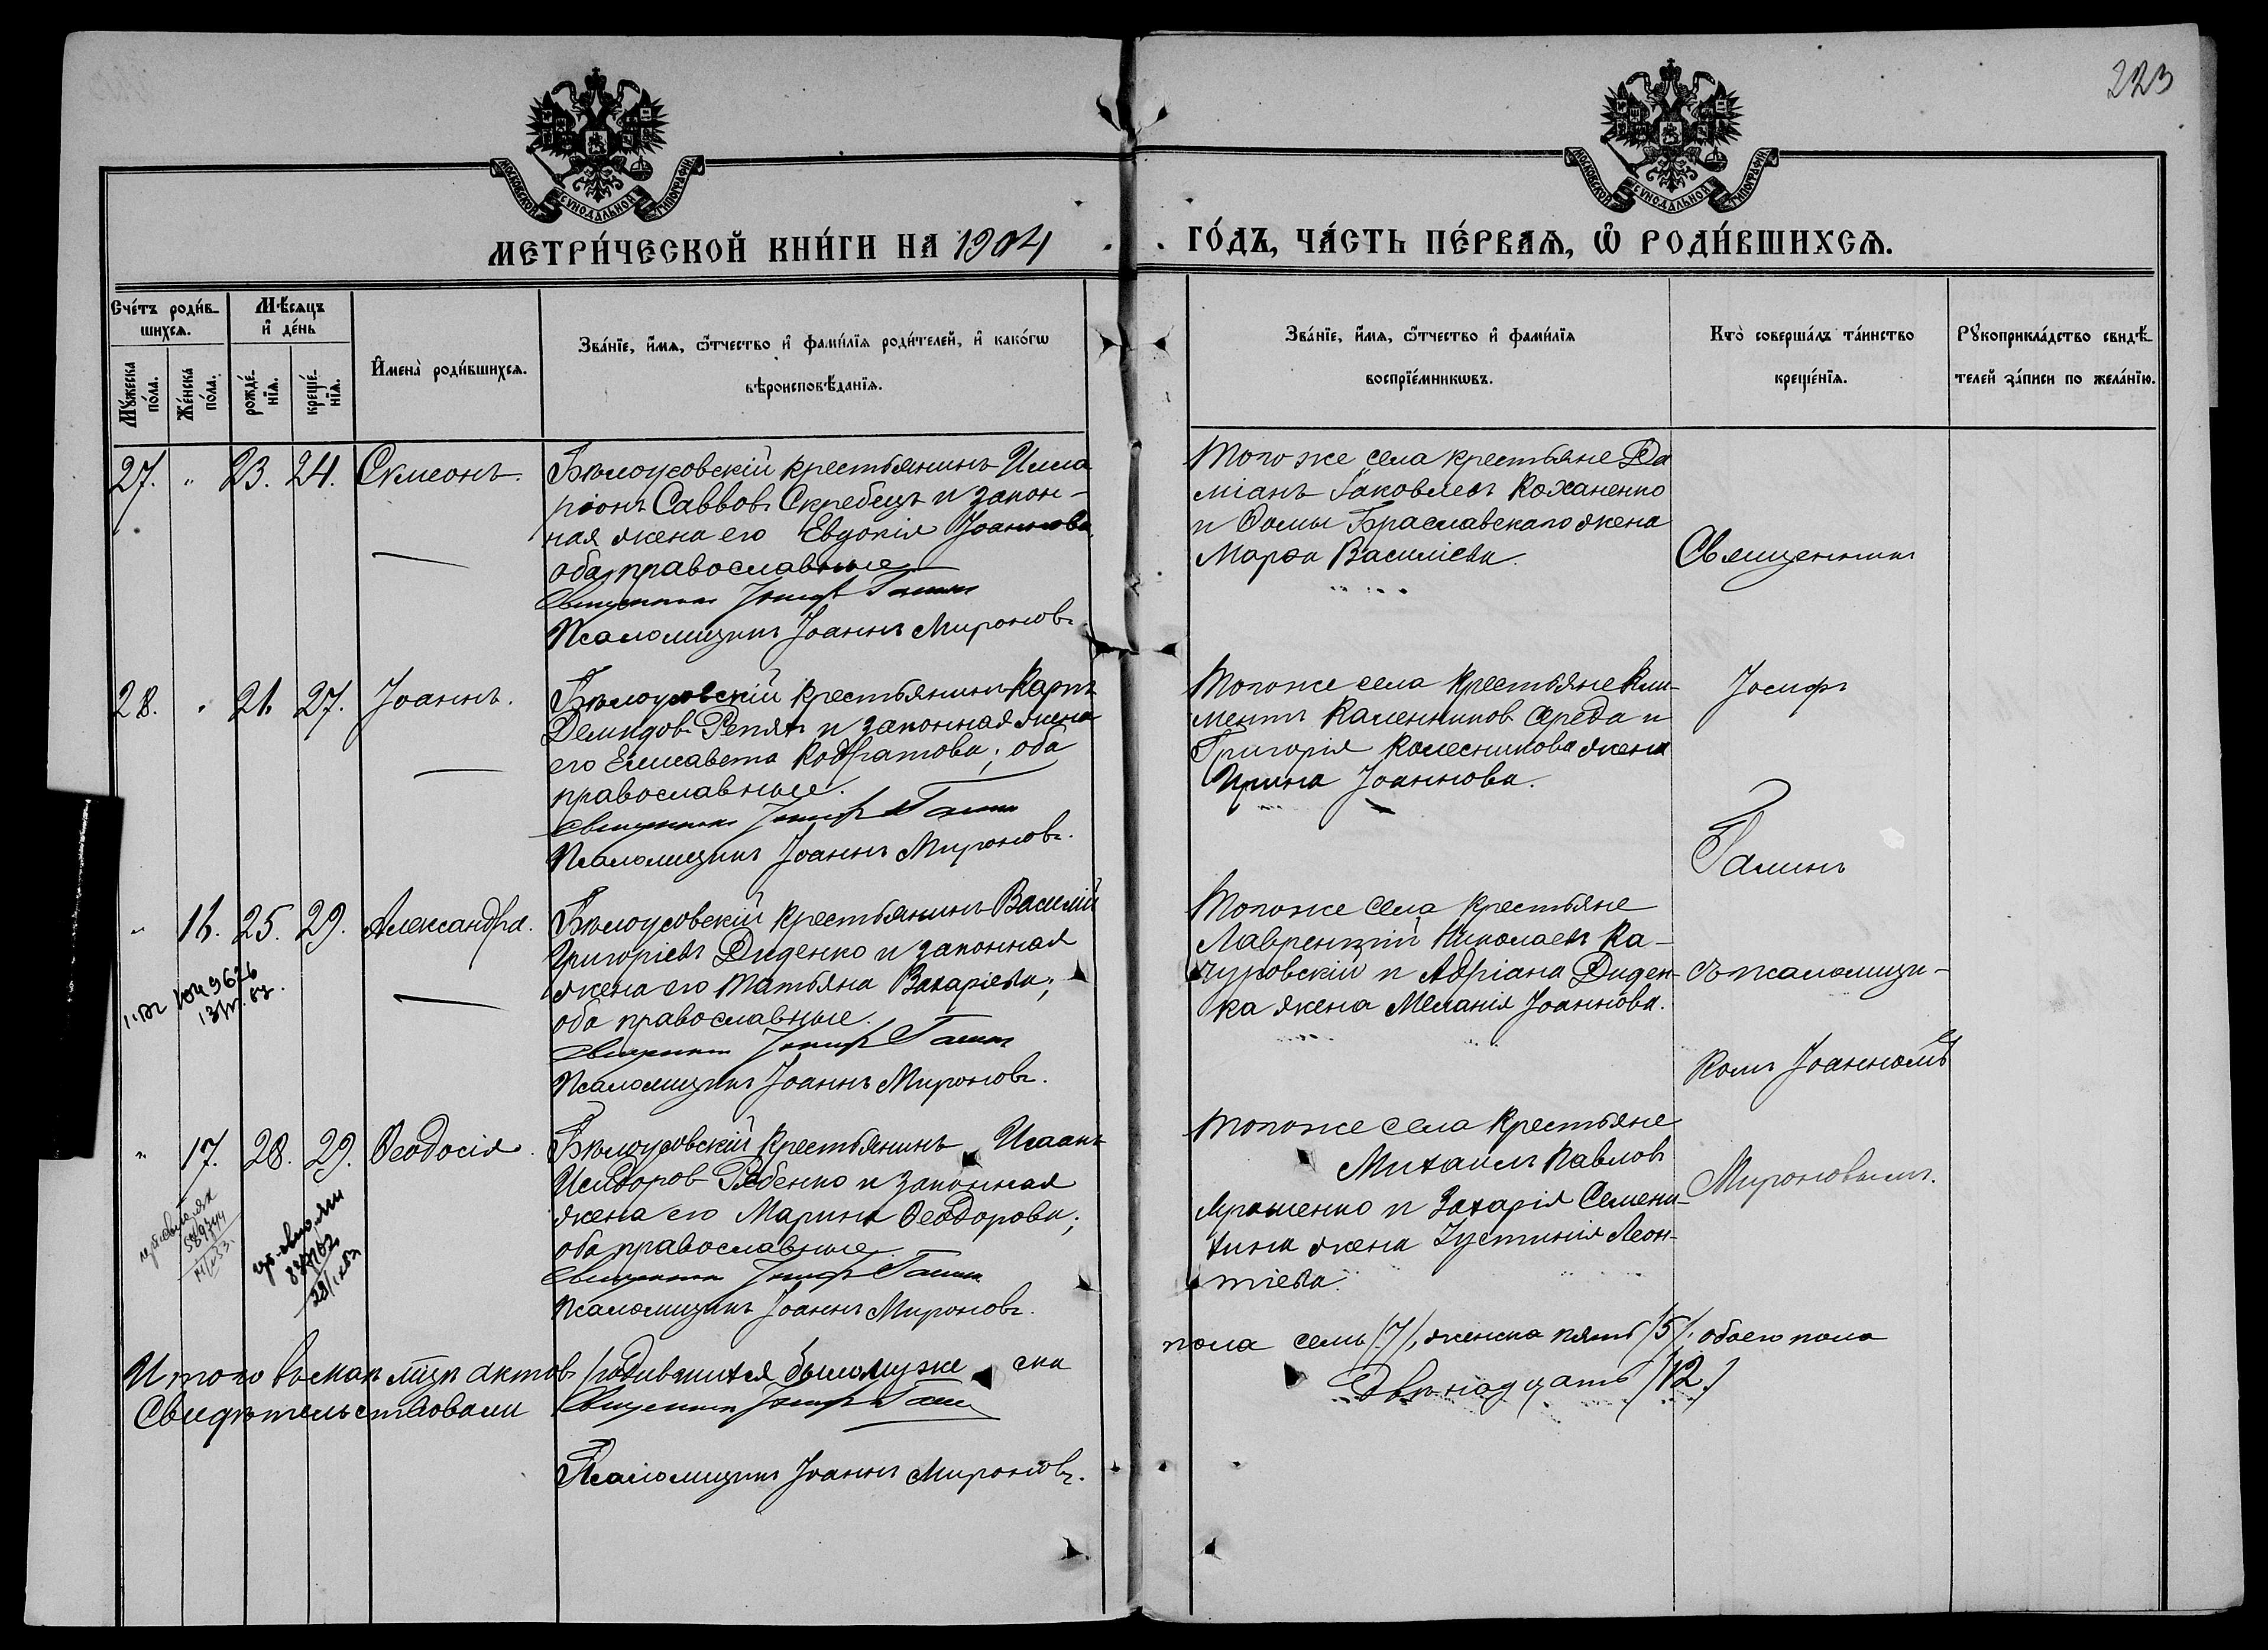 223
МОСКОВСКОЙ СУНОДАЛЬНОЙ ТИПОГРАФІИ
МОСКОВСКОЙ СУНОДАЛЬНОЙ ТИПОГРАФІИ
МЕТРИ́ЧЕСКОЙ КНИ́ГИ НА 1904
ГО́ДЪ, ЧА́СТЬ ПЕ́РВАѦ, Ѡ РОДИ́ВШИХСѦ.
Сче́тъ роди́в-
шихсѧ.
Мꙋ́жеска по́ла.
Же́нска по́ла.
Мѣ́сѧцъ
и де́нь
рожде́нїѧ.
креще́нїѧ.
Имена̀ роди́вшихсѧ.
Зва́нїе, и́мѧ, ѻ́тчество и фами́лїѧ роди́телей, и како́гѡ
вѣроисповѣ́данїѧ.
Зва́нїе, и́мѧ, ѻ́тчество и фами́лїѧ
воспрїе́мникѡвъ.
Кто̀ соверша́лъ та́инство
креще́нїѧ.
Рꙋкоприкла́дство свидѣ́-
телей за́писи по жела́нїю.
27. " 23. 24. Симеонъ.
Бѣлоусовскій крестьянинъ Илла
ріонъ Саввовъ Скребецъ и закон-
ная жена его Евдокія Іоаннова
оба православные
Священникъ Іосифъ Галинъ
Псаломщикъ Іоаннъ Мироновъ.
Того же села крестьяне Да
міанъ Іаковлевъ Коханенко
и Ѳомы Браславскаго жена
Марѳа Василіева.
Священникъ
28. " 21. 27. Іоаннъ.
Бѣлоусовскій крестьянинъ Карпъ
Демидовъ Репях и законная жена
его Елисавета Кодратова; оба
православные.
Священникъ Іосифъ Галинъ
Псаломщикъ Іоаннъ Мироновъ.
Того же села крестьяне Кли-
ментъ Каленниковъ Середа и
Григорія Колесникова жена
Ирина Іоаннова.
Іосифъ
Галинъ
" 16. 25. 29. Александра.
Бѣлоусовскій крестьянинъ Василій
Григоріевъ Диденко и законная
жена его Татьяна Захаріева;
оба православные.
Священникъ Іосифъ Галинъ
Псаломщикъ Іоаннъ Мироновъ.
Того же села крестьяне
Лаврентій Николаевъ Ка-
чуровскій и Адріана Диден-
ка жена Меланія Іоаннова.
съ псаломщи-
комъ Іоанномъ
" 17. 28. 29. Ѳеодосія.
Бѣлоусовскій крестьянинъ Исаакъ
Исидоров Рябенко и законная
жена его Марина Ѳеодорова;
оба православные.
Священникъ Іосифъ Галинъ
Псаломщикъ Іоаннъ Мироновъ.
Того же села крестьяне
Михаилъ Павловъ
Ярошенко и Захарія Семени-
хина жена Іустинія Леон-
тіева.
Мироновымъ.
Итого въ маѣ мцѣ актовъ родившихся было муже ска
пола семь /7/, женска пять /5/. обоего пола
Двѣнадцать /12/
Свидѣтельствовали Священникъ Іосифъ Галинъ
Псаломщикъ Іоаннъ Мироновъ.